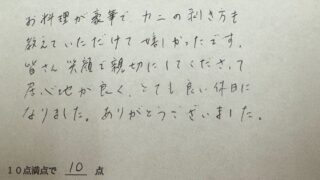 お料理が豪華で カニの剥き方も
教えていただけて嬉しかったです。
皆さん笑顔で親切にしてくださって
居心地が良く、とても良い休日に
なりました。ありがとうございました。
10点満点で 10 点